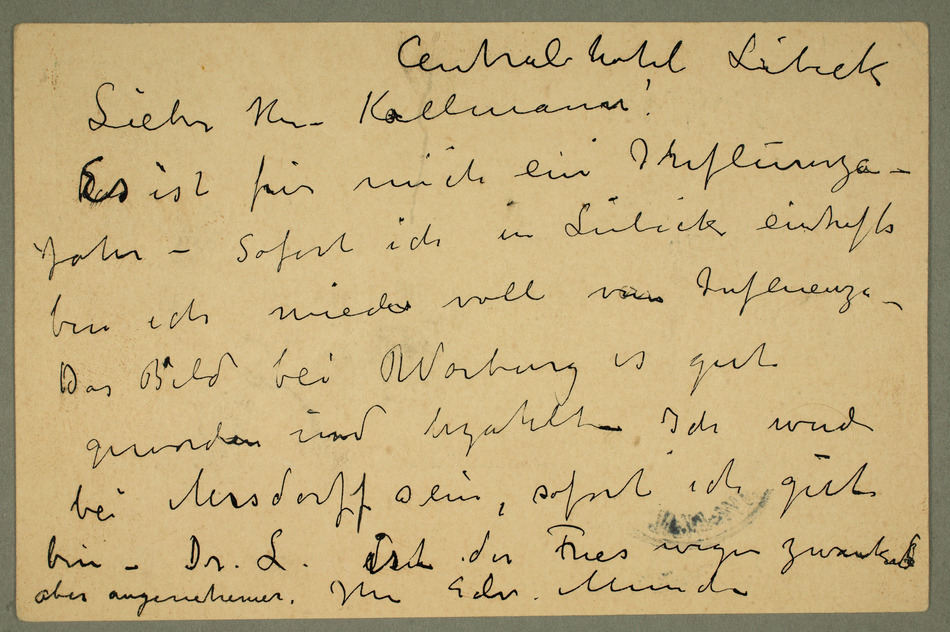 Centralhotel Lübeck
Lieber Herr Kollmann!
Es ist für mich ein Influenza-
Jahr – Sofort ich in Lübeck eintreffe
bin ich wieder voll von Influenza –
Das Bild bei Warburg is gut
geworden und bezahlt – Ich werde
bei sein, sofort ich gut
bin – Dr. L. Ist der Fries wegen
aber angenehmer. Ihr Edv. Munch